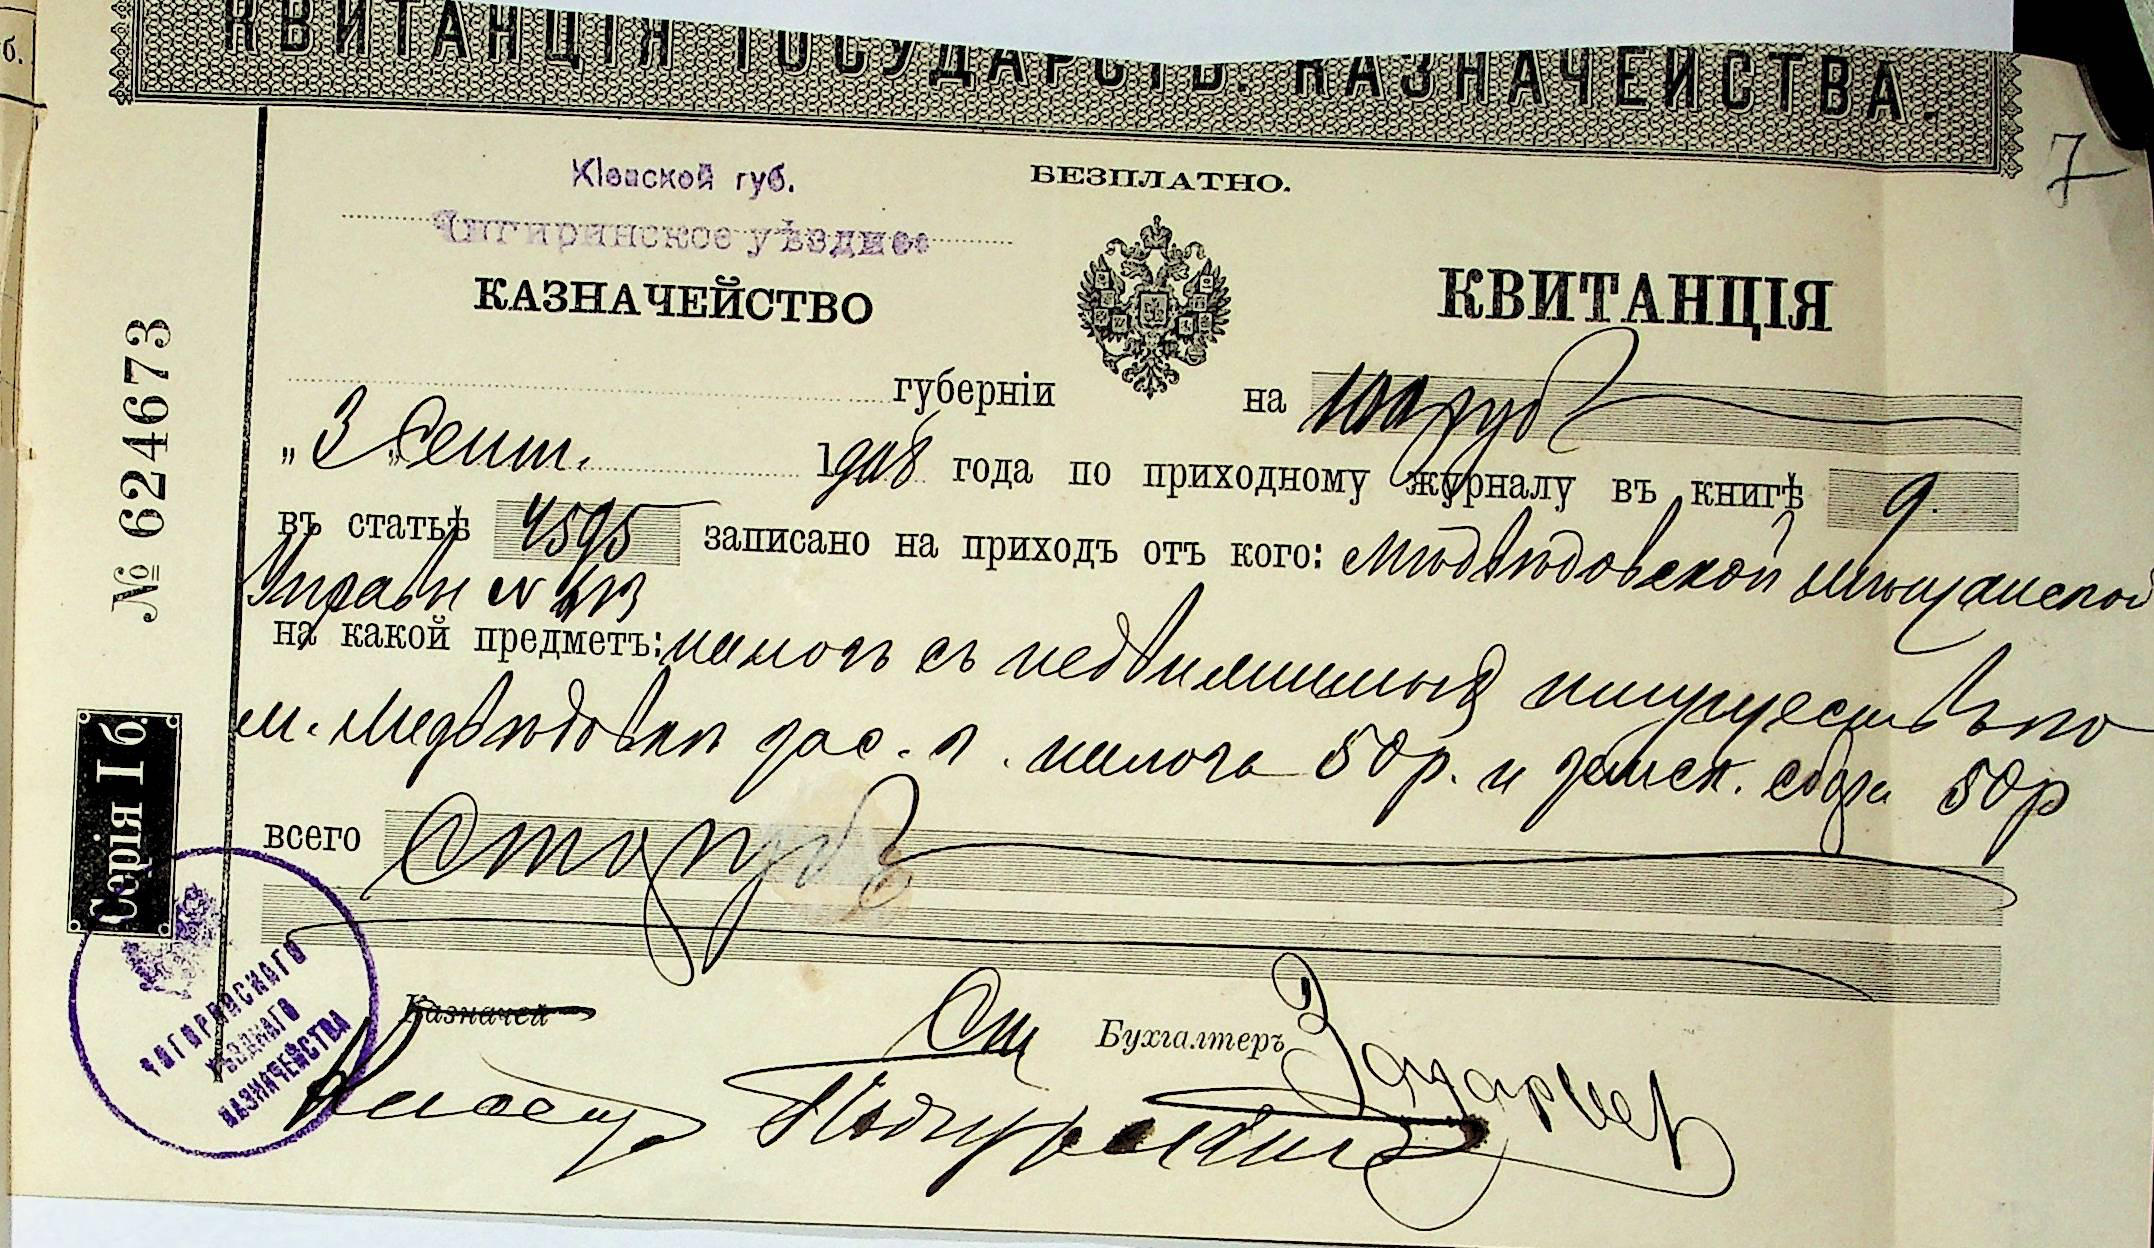 б.
КВИТАНЦІЯ ГОСУДАРСТВ. КАЗНАЧЕЙСТВА.
7
Кіевской губ.
БЕЗПЛАТНО.
Чигиринское уѣздное
КАЗНАЧЕЙСТВО
КВИТАНЦІЯ
губерніи
на 100 руб
"3" Сент. 1908 года по приходному журналу въ книгѣ 9.
въ статьѣ 4595 записано на приходъ отъ кого: Медвѣдовской мѣщанской
Управы №
на какой предметъ: налогъ съ недвижимыхъ имуществъ по
м. Медвѣдовкѣ гос. налога 50 р. и земск. сбора 50 р
всего Сто руб
№ 624673
Серія I б.
ЧИГИРИНСКАГО
УѢЗДНАГО
КАЗНАЧЕЙСТВА
Казначей
Ст Бухгалтеръ
Кассир